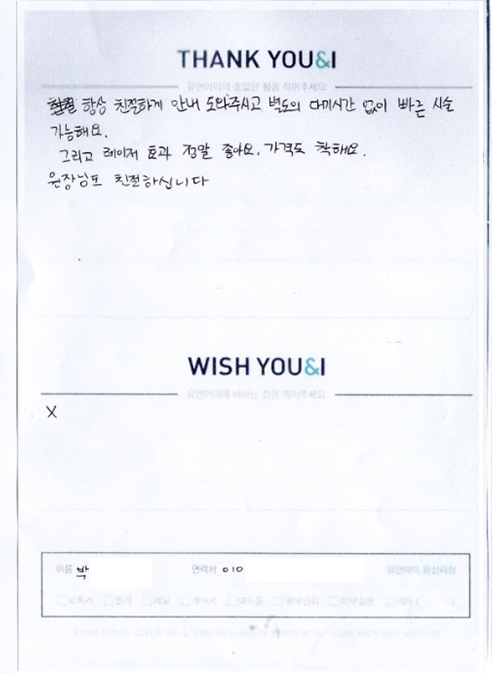 THANK YOU&I
유앤아이의 좋았던 점을 적어주세요
항상 친절하게 안내 도와주시고 별도의 대기시간 없이 빠른 시술
가능해요.
그리고 레이저 효과 정말 좋아요. 가격도 착해요.
원장님도 친절하십니다
WISH YOU&I
유앤아이에 바라는 점을 적어주세요
X
이름 박 연락처 010 유앤아이 왕십리점
보톡스 필러 제모 레이저 여드름 피부관리 피부질환 기타 (